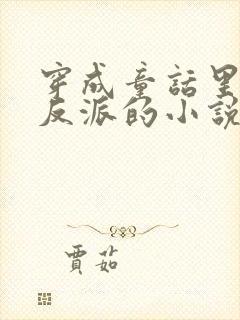 穿成童話里
反派的小說
賈茹